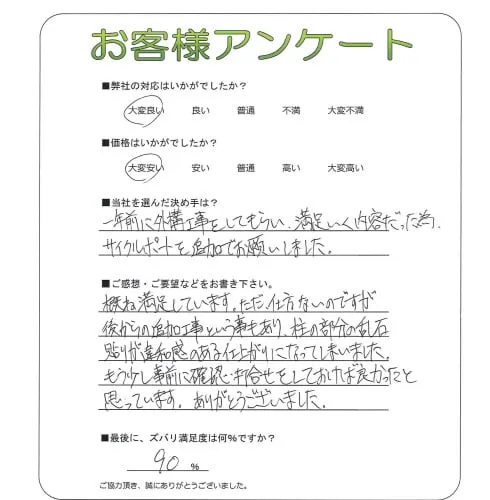 お客様アンケート
■弊社の対応はいかがでしたか？
大変良い 良い 普通 不満 大変不満
■価格はいかがでしたか？
大変安い 安い 普通 高い 大変高い
■当社を選んだ決め手は？
一年前に外構工事をしてもらい、満足いく内容だった為、
サイクルポートを追加でお願いしました。
■ご感想・ご要望などをお書き下さい。
概ね満足しています。ただ、仕方ないのですが
後からの追加工事という事もあり、柱の部分の乱石
貼りが違和感のある仕上がりになってしまいました。
もう少し事前に確認・打合せをしておけば良かったと
思っています。ありがとうございました。
■最後に、ズバリ満足度は何％ですか？
90 ％
ご協力頂き、誠にありがとうございました。